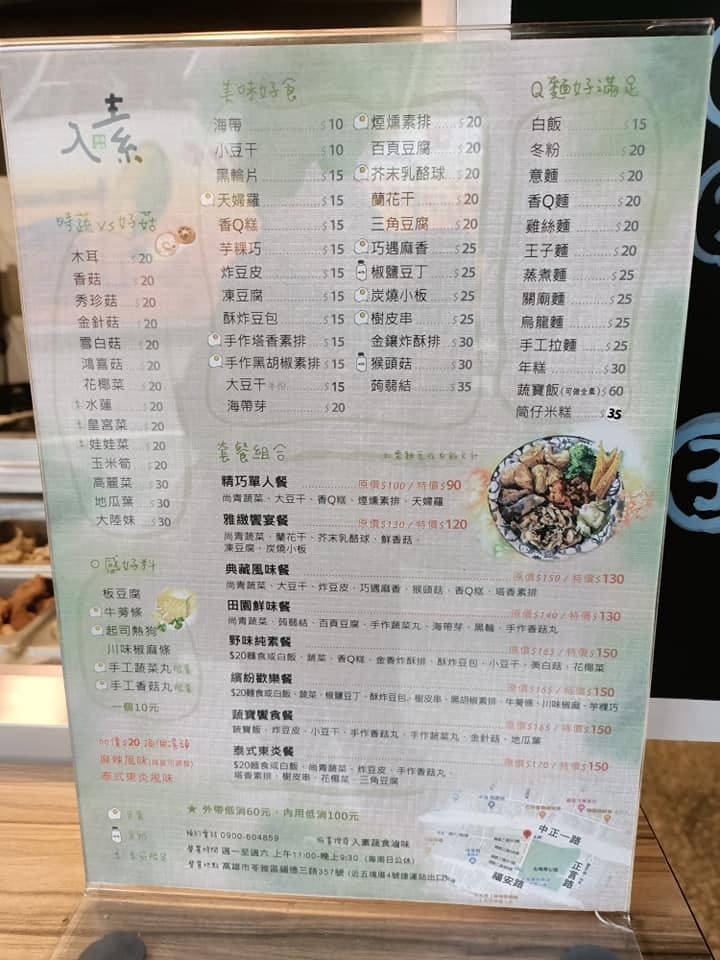 入素
時蔬vs好菇
木耳 $20
香菇 $20
秀珍菇 $20
金針菇 $20
雪白菇 $20
鴻喜菇 $20
花椰菜 $20
水蓮 $20
皇宮菜 $20
娃娃菜 $20
玉米筍 $20
高麗菜 $30
地瓜葉 $30
大陸妹 $30
Q感好料
板豆腐
牛蒡條
起司熱狗
川味椒麻條
手工蔬菜丸
手工香菇丸
一個10元
加價$20 頂級湯頭
麻辣風味
泰式東炎風味
美味好食
海帶 $10
小豆干 $10
黑輪片 $15
天婦羅 $15
香Q糕 $15
芋粿巧 $15
炸豆皮 $15
凍豆腐 $15
酥炸豆包 $15
手作塔香素排 $15
手作黑胡椒素排 $15
大豆干 $15
海帶芽 $20
煙燻素排 $20
百頁豆腐 $20
芥末乳酪球 $20
蘭花干 $20
三角豆腐 $20
巧遇麻香 $25
椒鹽豆丁 $25
炭燒小板 $25
樹皮串 $25
金鑲炸酥排 $30
猴頭菇 $30
蒟蒻結 $35
Q麵好滿足
白飯 $15
冬粉 $20
意麵 $20
香Q麵 $20
雞絲麵 $20
王子麵 $20
蒸煮麵 $25
關廟麵 $25
烏龍麵 $25
手工拉麵 $25
年糕 $30
蔬寶飯(可做全素) $60
筒仔米糕 $35
套餐組合
精巧單人餐 原價$100 / 特價$90
尚青蔬菜、大豆干、香Q糕、煙燻素排、天婦羅
雅緻饗宴餐 原價$130 / 特價$120
尚青蔬菜、蘭花干、芥末乳酪球、鮮香菇、
凍豆腐、炭燒小板
典藏風味餐 原價$150 / 特價$130
尚青蔬菜、大豆干、炸豆皮、巧遇麻香、猴頭菇、香Q糕、塔香素排
田園鮮味餐 原價$140 / 特價$130
尚青蔬菜、蒟蒻結、百頁豆腐、手作蔬菜丸、海帶芽、黑輪、手作香菇丸
野味純素餐 原價$165 / 特價$150
$20麵食或白飯、蔬菜、香Q糕、金香炸酥排、酥炸豆包、小豆干、美白菇、花椰菜
繽紛歡樂餐 原價$165 / 特價$150
$20麵食或白飯、蔬菜、椒鹽豆丁、酥炸豆包、樹皮串、黑胡椒素排、牛蒡條、川味椒麻、芋粿巧
蔬寶饗食餐 原價$165 / 特價$150
蔬寶飯、炸豆皮、小豆干、手作香菇丸、手作蔬菜丸、金針菇、地瓜葉
泰式東炎餐 原價$170 / 特價$150
$20麵食或白飯、尚青蔬菜、炸豆皮、手作香菇丸、
塔香素排、樹皮串、花椰菜、三角豆腐
★ 外帶低消60元，內用低消100元
預約電話 0900-604859 臉書搜尋 入素蔬食滷味
營業時間 週一至週六 上午11:00-晚上9:30 (每周日公休)
營業地點 高雄市苓雅區福德三路357號 (近五塊厝4號捷運站出口)
中正一路
正言路
福安路